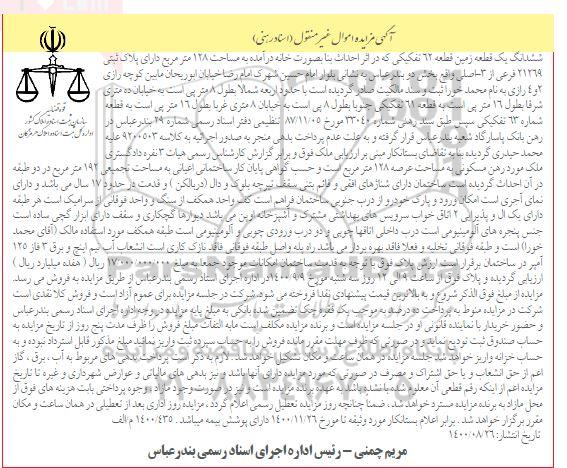 آگهی مزایده اموال غیر منقول (اسناد رهنی)
ششدانگ یک قطعه زمین قطعه ۶۲ تفکیکی که در اثر احداث بنا بصورت خانه درآمده به مساحت ۱۲۸ متر مربع دارای پلاک ثبتی
۲۱۲۶۹ فرعی از ۳-اصلی واقع بخش دو بندرعباس به نشانی بلوار امام حسین شهرک امام رضا خیابان ابوریحان مابین کوچه رازی
۲و۴ رازی به نام محمد خورا ثبت و سند مالکیت صادر گردیده است با حدود اربعه شمالا بطول ۸ متر پی است به خیابان ده متری
شرقا بطول ۱۶ متر پی است به قطعه ۶۱ تفکیکی جنوبا بطول ۸ پی است به خیابان ۸ متری غربا بطول ۱۶ متر پی است به قطعه
شماره ۶۳ تفکیکی سپس طبق سند رهنی شماره ۳۳۰۴۰ مورخ ۸۷/۱۱/۰۵ تنظیمی دفتر اسناد رسمی شماره ۲۹ بندرعباس در
رهن بانک پاسارگاد شعبه بندرعباس قرار گرفته و به علت عدم پرداخت بدهی منجر به صدور اجرائیه به کلاسه ۹۲۰۰۵۰۳ علیه
محمد حیدری گردیده بنا به تقاضای بستانکار مبنی بر ارزیابی ملک فوق و برابر گزارش کارشناس رسمی هیات ۳ نفره دادگستری
ملک مورد رهن مسکونی به مساحت عرصه ۱۲۸ متر مربع است و حسب گواهی پایان کار ساختمانی اعیانی به مساحت تجمیعی ۱۹۲ متر مربع در دو طبقه
در آن احداث گردیده است. ساختمان دارای شناژهای افقی و قائم بتنی سقف تیرچه بلوک و دال (دربالکن ) و قدمت در حدود ۱۷ سال می باشد و دارای
نمای آجری است امکان ورود و پارک خودرو از درب جنوبی ساختمان فراهم است کف واحد همکف از سنگ و واحد فوقانی از سرامیک است هر طبقه
دارای یک ال و پذیرایی ۲ اتاق خواب سرویس های بهداشتی مشترک و آشپزخانه اوپن می باشد دیوارها گچکاری و سقف دارای ابزار گچی ساده است
جنس پنجره های آلومینیومی است درب داخلی اتاقها چوبی و دو درب ورودی چوبی و آلومینیومی است طبقه همکف مورد استفاده مالک (آقای محمد
خورا) است و طبقه فوقانی تخلیه و فعلا فاقد بهره بردار می باشد. راه پله واصل طبقه فوقانی فاقد نازک کاری است انشعاب آب نیم اینچ و برق ۳ فاز ۱۲۵
آمپر در ساختمان برقرار است ارزش پلاک فوق با توجه به قدمت ساختمان امکانات موجود جمعا به مبلغ ۱۷۰۰۰۰۰۰۰۰۰ ریال ( هفده میلیارد ریال )
ارزیابی گردیده و پلاک فوق از ساعت ۹ الی ۱۲ روز سه شنبه مورخ ۱۴۰۰/۹/۹ در اداره اجرای اسناد رسمی بندرعباس از طریق مزایده به فروش می رسد.
مزایده از مبلغ فوق الذکر شروع و به بالاترین قیمت پیشنهادی نقدا فروخته می شود. شرکت در جلسه مزایده برای عموم آزاد است و فروش کلا نقدی است
شرکت در مزایده منوط به پرداخت ده درصد به موجب یک فقره چک تضمین شده بانکی به مبلغ پایه مزایده در وجه اداره اجرای اسناد رسمی بندرعباس
و حضور خریدار یا نماینده قانونی او در جلسه مزایده است و برنده مزایده مکلف است مابه التفاوت مبلغ فروش را ظرف مدت پنج روز از تاریخ مزایده به
حساب صندوق ثبت تودیع نماید و در صورتی که ظرف مهلت مقرر مانده فروش را به حساب سپرده ثبت واریز ننمایند مبلغ مذکور قابل استرداد نبوده و به
حساب خزانه واریز خواهد شد جلسه مزایده در همان ساعت و مکان تشکیل خواهد شد. لازم به ذکر است پرداخت بدهی های مربوط به آب ، برق ، گاز
اعم از حق انشعاب و یا حق اشتراک و مصرف در صورتی که مورد مزایده دارای آنها باشد و نیز بدهی های مالیاتی و عوارض شهرداری و غیره تا تاریخ
مزایده اعم از اینکه رقم قطعی آن معلوم شده یا نشده باشد به عهده برنده مزایده است و نیز در صورت وجود مازاد وجوه پرداختی بابت هزینه های فوق از
محل مازاد به برنده مزایده مسترد خواهد شد. ضمنا چنانچه روز مزایده تعطیل رسمی اعلام گردد ، مزایده روز اداری بعد از تعطیلی در همان ساعت و مکان
مقرر برگزار خواهد شد . برابر اعلام بستانکار مورد وثیقه تا مورخ ۱۴۰۰/۱۱/۲۶ دارای پوشش بیمه میباشد . ۱۴۰۰/۴۳۵ م/الف
تاریخ انتشار: ۱۴۰۰/۰۸/۲۶
مریم چمنی – رئیس اداره اجرای اسناد رسمی بندرعباس
قوه قضائیه
سازمان ثبت اسناد و املاک کشور
اداره کل ثبت اسناد و املاک هرمزگان